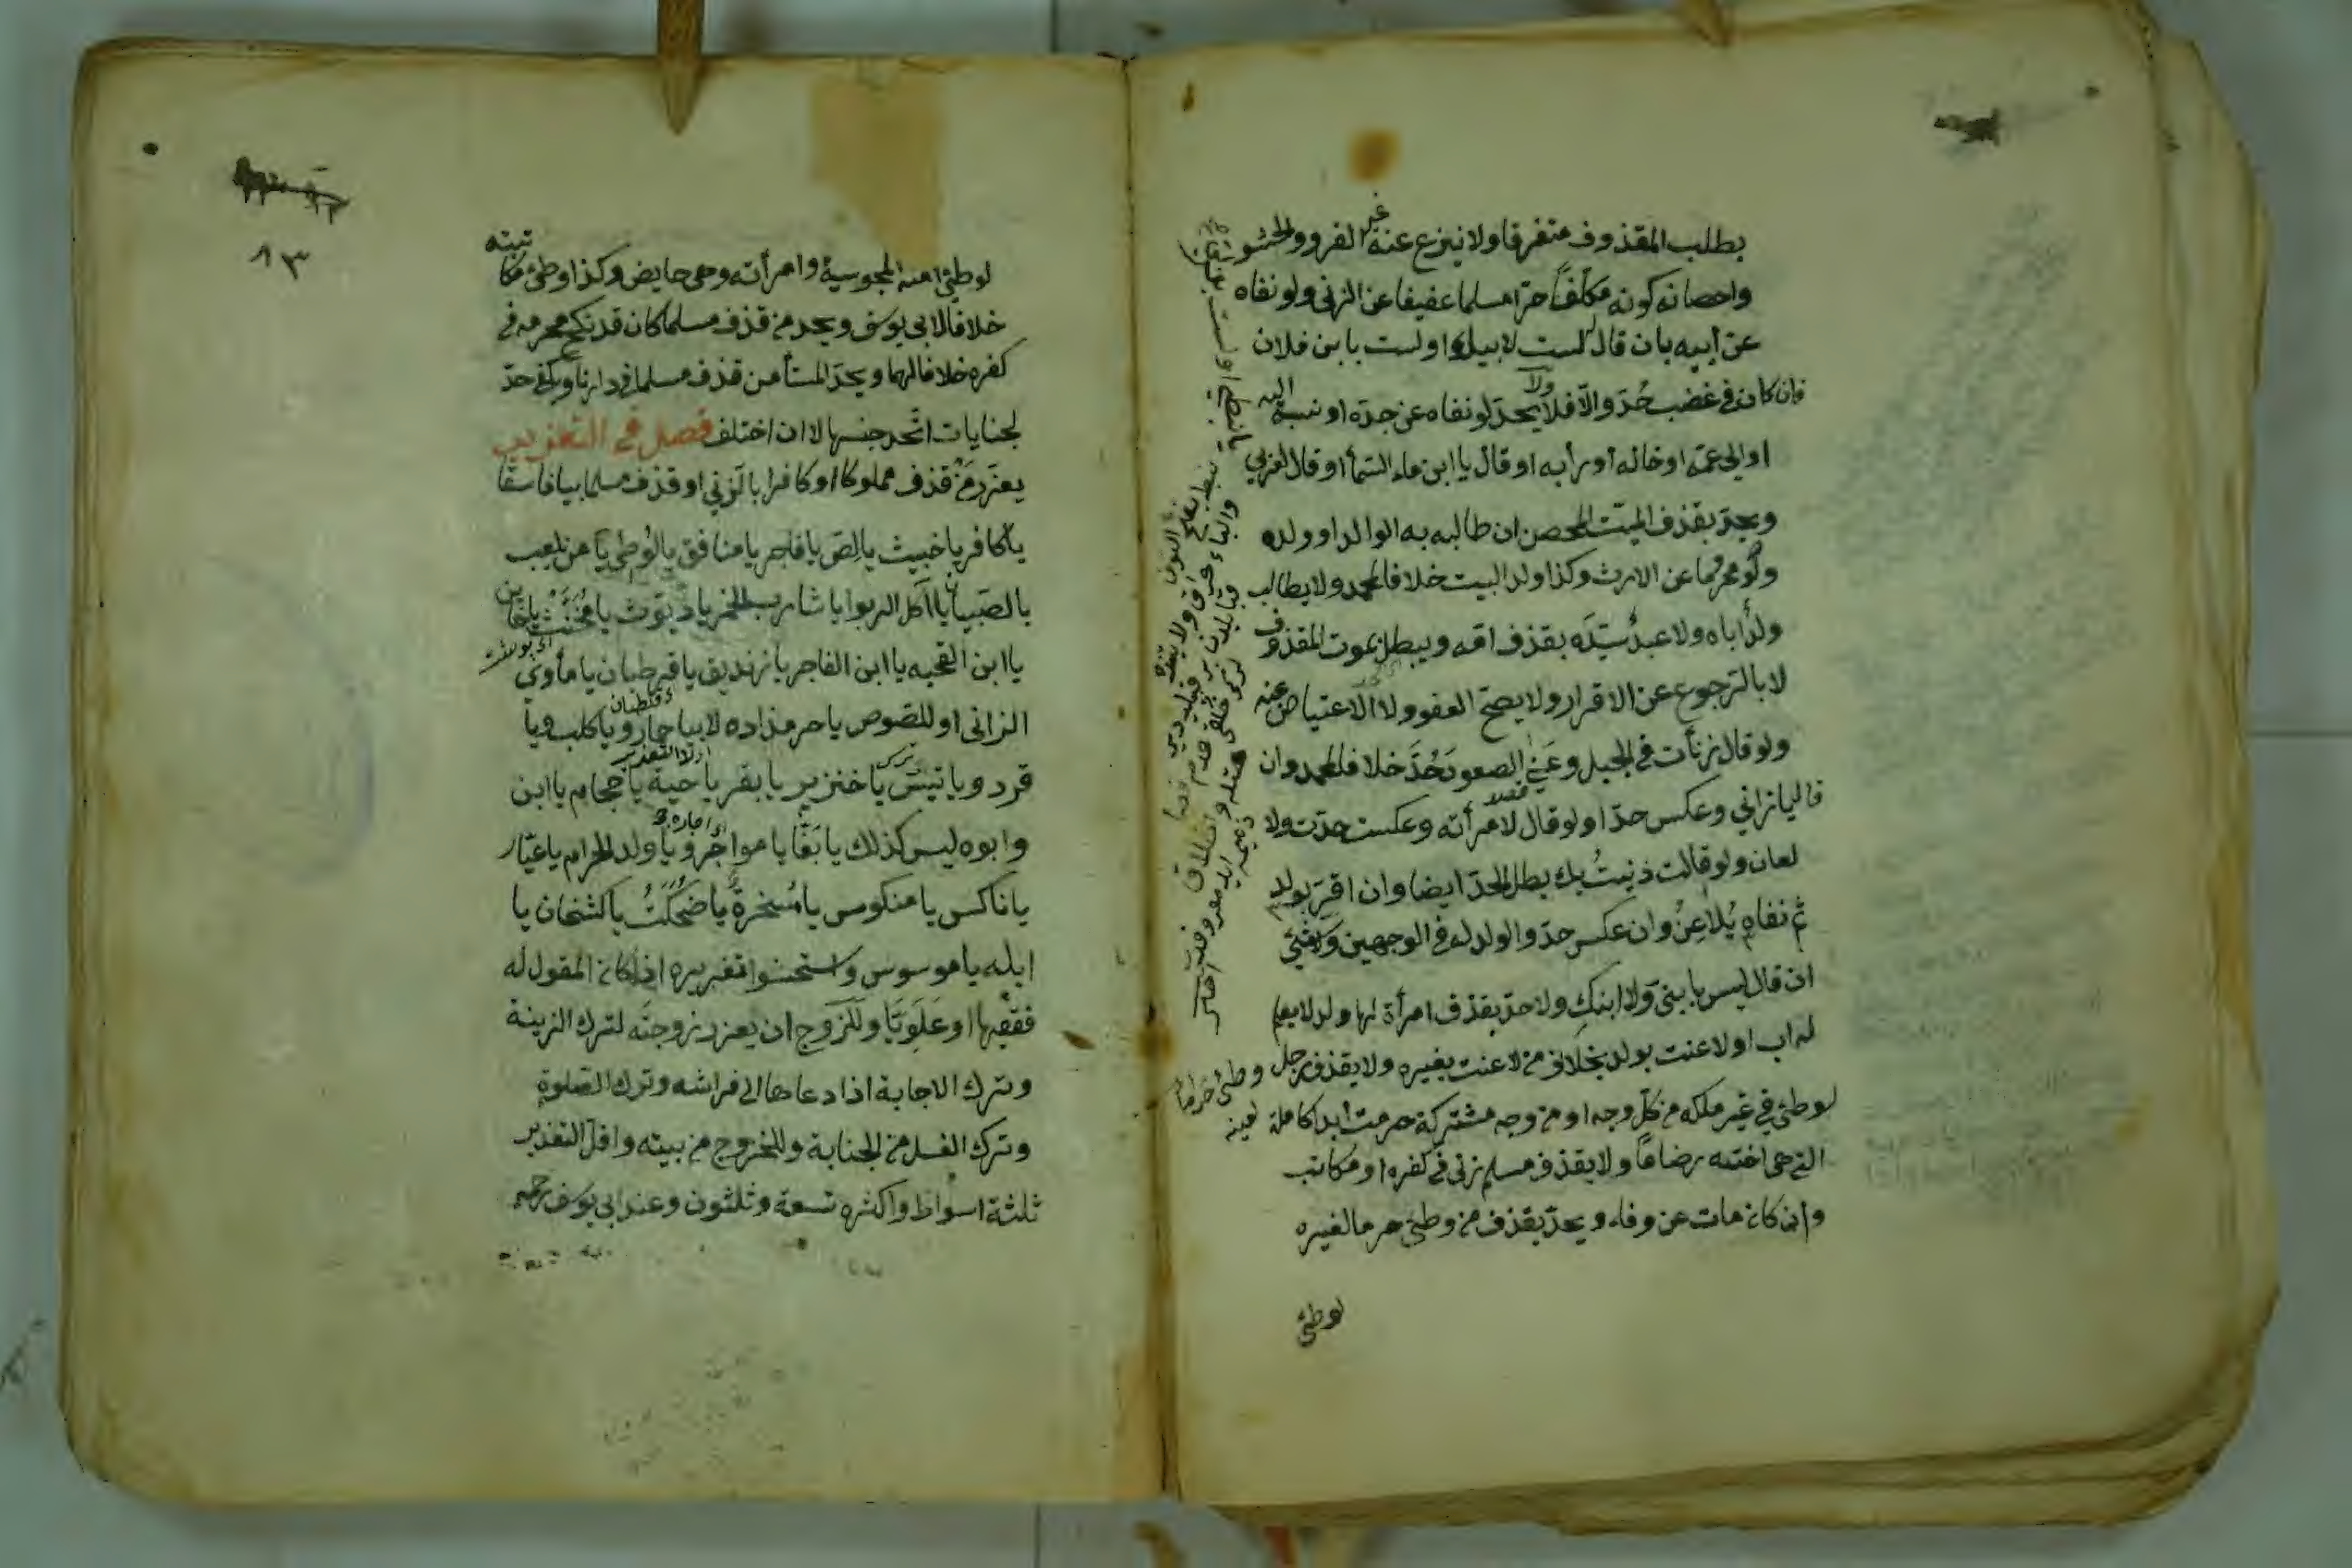 بطلب المقذوف متفرقا ولا ينزع عنه غير الفرو والحشو
واحصانه كونه مكلفا حرا مسلما عفيفا عن الزنى ولو نفاه
عن أبيه بان قال لست لابيك او لست بابن فلان
فان كان في غضب حُدّ والّا فلا ولا يحدّ لو نفاه عن جدّه او نسبه اليه
او الى عمّه او خاله او رابه او قال يا ابن ماء السّمأ او قال لعربي
ويحدّ بقذف الميّت المحصن ان طالبه به الوالد او ولده
ولو محروما عن الارث وكذا ولد البيت خلافا لمحمد ولا يطالب
ولدٌ أباه ولا عبدٌ سيّده بقذف امّه ويبطل بموت المقذوف
لا بالرّجوع عن الاقرار ولا يصحّ العفو ولا الاعتياض عنه
ولو قال زنأت في الجبل وعَنىٰ الصعود حُدَّ خلافا لمحمد وان
قال يا زاني وعكس حدّا ولو قال لامرأته وعكست حدّت ولا
لعان ولو قالت زنيتُ بك بطل الحدّ ايضا وان اقرّ بولد
ثم نفاه يُلاعِنُ وان عكس حدّ والولد له في الوجهين ولا شئ
ان قال ليس بابني ولا ابنكِ ولا حدّ بقذف امرأة لها ولد لا يعلم
له اب او لاعنت بولد بخلاف من لاعنت بغيره ولا بقذف رجل وطئ حراما لعينه
لو طئ في غير ملكه من كلّ وجه او من وجه مشتركة حرمت ابدا كامة
التي هي اخته رضاعًا ولا بقذف مسلم زنى في كفره او مكاتب
وان كان مات عن وفاء ويحدّ بقذف من وطئ حرما لغيره
لو طئ
١٣
لو طئ امته المجوسية وامرأته وهي حايض وكذا وطئ مكاتبته
خلافا لابي يوسف ويحد من قذف مسلما كان قد نكح محرمه في
كفره خلافا لهما ويحدّ المستأمن قذف مسلما في دارنا ويكفي حدّ
لجنايات اتّحد جنسها لا ان اختلف فصل في التعزير
يعزّر مَنْ قذف مملوكا او كافرا بالزني او قذف مسلما بيا فاسق
يا كافر يا خبيث يا لِصّ يا فاجر يا منافق يا لوطي يا من يلعب
بالصّبيان يا آكل الربوا يا شارب الخمر يا ديّوث يا مُخَنّثْ يا خائن
يا ابن القحبه يا ابن الفاجر يا زنديق يا قرطبان يا مأوى
الزانى او للصوص يا حرمزاده لا بيا حمار ويا كلب ويا
قرد ويا تيس يا خنزير يا بقر يا حية يا حجام يا ابن
وابوه ليس كذلك يا بَغّا يا مواجر ويا ولد الحرام يا عيّار
يا ناكس يا منكوس يا سُخرة يا ضحكة يا كشخان يا
ابله يا موسوس واستحسنوا تعزيره اذا كان المقول له
فقيها او علويّا وللزّوج ان يعزر زوجته لترك الزينة
وترك الاجابة اذا دعاها الى فراشه وترك الصّلوة
وترك الغسل من الجنابة وللخروج من بيته واقلّ التعذير
ثلثة اسواط واكثره تسعة وثلثون وعند ابي يوسف رحمه